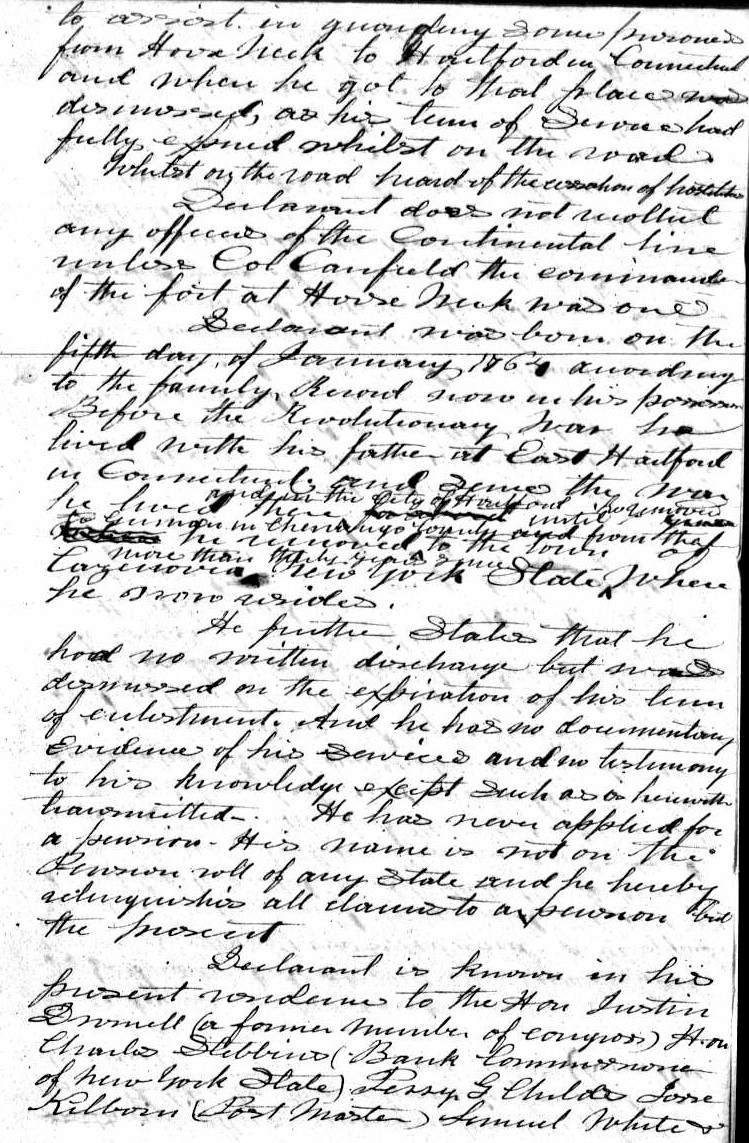 to assist in guarding some prisoners
from Horse Neck to Hartford in Connecticut
and when he got to that place was
dismissed, as his term of Service had
fully expired whilst on the road
Whilst on the road heard of the cessation of hostilities
Declarant does not recollect
any officers of the Continental line
unless Col Canfield the commander
of the fort at Horse Neck was one
Declarant was born on the
fifth day of January 1764 according
to the family Record now in his possession
Before the Revolutionary War he
lived with his father at East Hartford
in Connecticut and since the War
and in the City of Hartford
he lived there until he removed
to in Chenango County and from that
he removed to the town of
more than thirty years since
Cazenovia New York State, Where
he now resides.
He further States that he
had no written discharge but was
dismissed on the expiration of his term
of enlistment. And he has no documentary
Evidence of his Services and no testimony
to his knowledge except such as is herewith
transmitted. He has never applied for
a pension. His name is not on the
Pension roll of any State and he hereby
relinquishes all claims to a pension but
the present
Declarant is known in his
present residence to the Hon Justin
Dwinell (a former member of congress) Hon
Charles Stebbins (Bank Commissioner
of New York State) Perry G Childs Jesse
Kilborn (Post Master) Lemuel White &